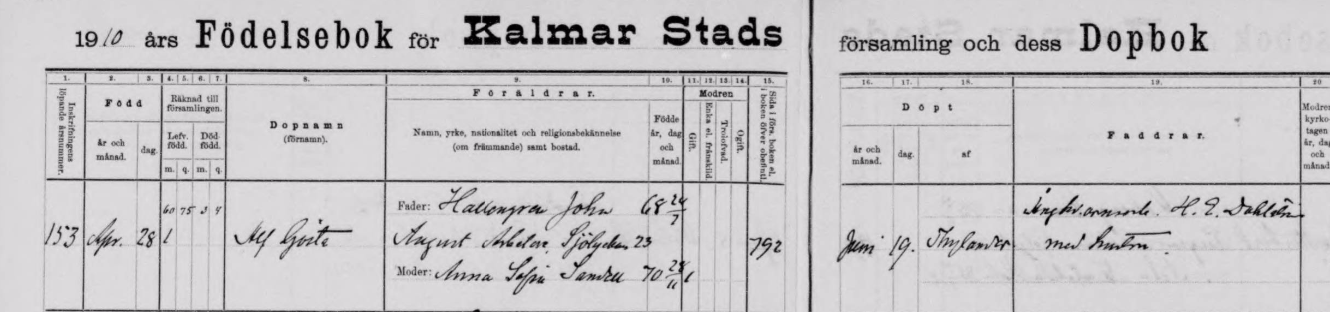 1910 års Födelsebok för Kalmar Stads
församling och dess Dopbok
1. 2. 3. 4. 5. 6. 7. 8. 9. 10. 11. 12. 13. 14. 15.
16. 17. 18. 19. 20
Inskrifningens löpande årsnummer.
Född
år och månad.
dag.
Räknad till församlingen.
Lefv. född.
Död född.
m. q. m. q.
Dopnamn
(förnamn).
Föräldrar.
Namn, yrke, nationalitet och religionsbekännelse
(om främmande) samt bostad.
Födde
år, dag
och
månad.
Modren
Gift.
Enka el. frånskild.
Trolofvad.
Ogift.
Sida i förs. boken el. i boken öfver obefintl.
Döpt
år och månad.
dag.
af
Faddrar.
Modren
kyrko-
tagen
år, dag
och
månad
60 75 3 4
Fader: Hallengren John 68 24/7
153 Apr. 28 1 Alf Gösta August Arbetare, 23 792
Moder: Anna Sofia Sandell 70 28/11 1
Juni 19. Thylander
H. E. Dahlström
med hustru